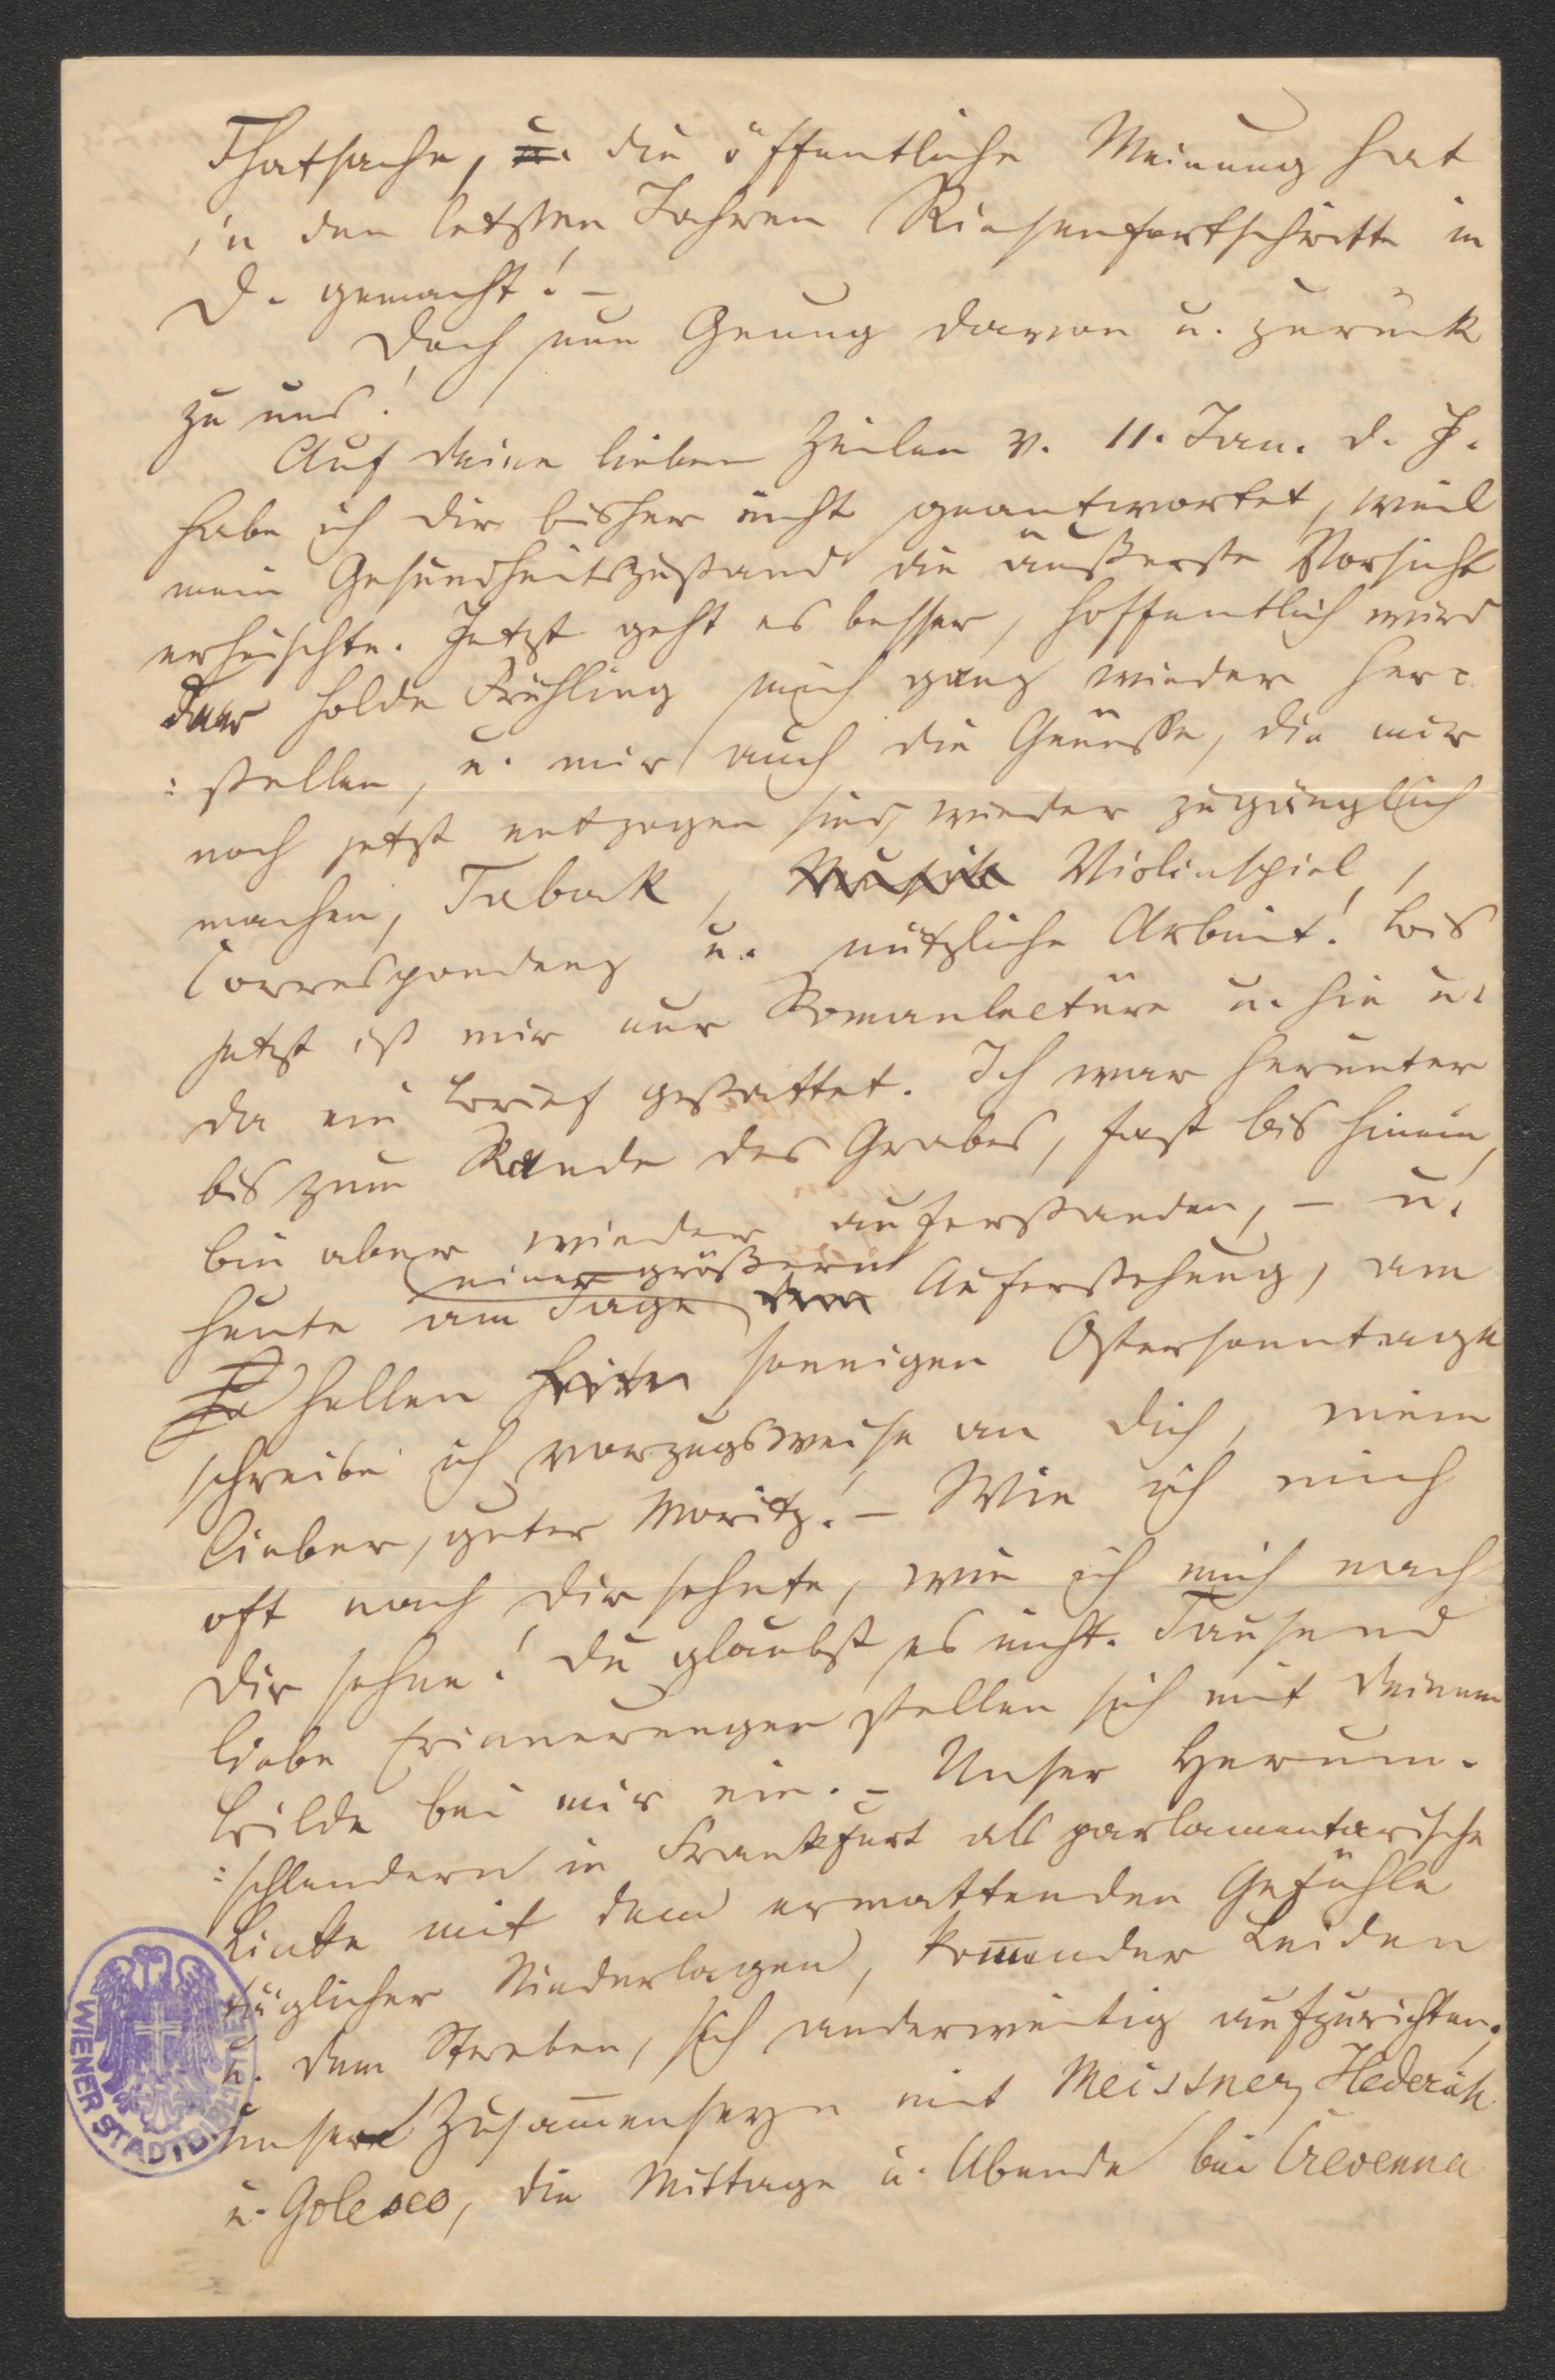 Thatsache, u. die öffentliche Meinung hat
in den letzten Jahren Riesenfortschritte in
D. gemacht! –
Doch nun Genug davon u. zurück
zu uns!
Auf deine lieben Zeilen v. 11. Jan. d. J.
habe ich dir bisher nicht geantwortet, weil
mein Gesundheitszustand die äußerste Vorsicht
erheischte. Jetzt geht es besser, hoffentlich wird
der holde Frühling mich ganz wieder her=
=stellen, u. mir auch die Genüsse, die mir
noch jetzt entzogen sind, wieder zugänglich
machen, Tabak, Musik Violinspiel,
Correspondenz u. nützliche Arbeit! Bis
jetzt ist mir nur Romanlectüre u. hie u.
da ein Brief gestattet. Ich war herunter
bis zum Rande des Grabes, fast bis hinein,
bin aber wieder auferstanden, – u.
einer größern
heute am Tage der Auferstehung, am
hellen sonnigen Ostersonntage
schreibe ich vorzugsweise an dich, mein
lieber, guter Moritz! – Wie ich mich
oft nach dir sehnte, wie ich mich nach
dir sehne! du glaubst es nicht. Tausend
liebe Erinnerungen stellen sich mit deinem
Bilde bei mir ein. – Unser Herum=
=schlendern in Frankfurt als parlamentarische
Linke mit dem ermattenden Gefühle
täglicher Niederlagen, kom̄ender Leiden
u. dem Streben, sich anderweitig aufzurichten,
unser Zusam̄enseyn mit Meissner, Hederich
u. Golesco, die Mittage u. Abende bei Crevenna
WIENER STADTBIBLIOTHEK